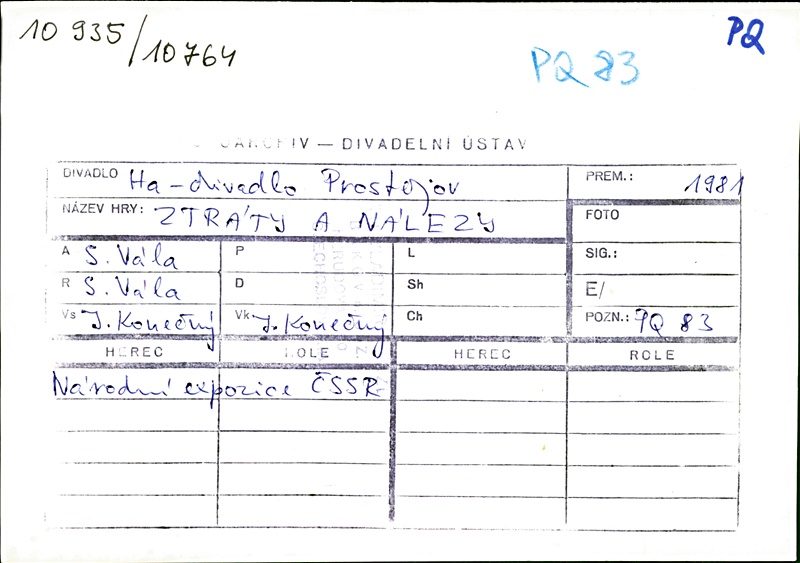 10 935/10764
PQ
PQ 83
ARCHIV — DIVADELNÍ ÚSTAV
DIVADLO Ha-divadlo Prostějov
PREM.: 1981
NÁZEV HRY: ZTRÁTY A NÁLEZY
FOTO
A S. Vála P L SIG.:
R S. Vála D Sh E/
Vs J. Konečný Vk J. Konečný Ch POZN.: PQ 83
HEREC ROLE HEREC ROLE
Národní expozice ČSSR